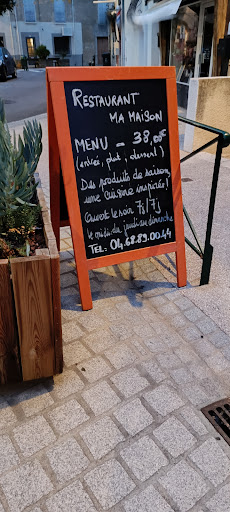 RESTAURANT
MA MAISON
MENU = 38,00€
(entrée, plat, dessert)
Des produits de saison,
une cuisine inspirée!
Ouvert le soir 7j/7j
le midi du jeudi au dimanche
TEL: 04.68.89.00.44